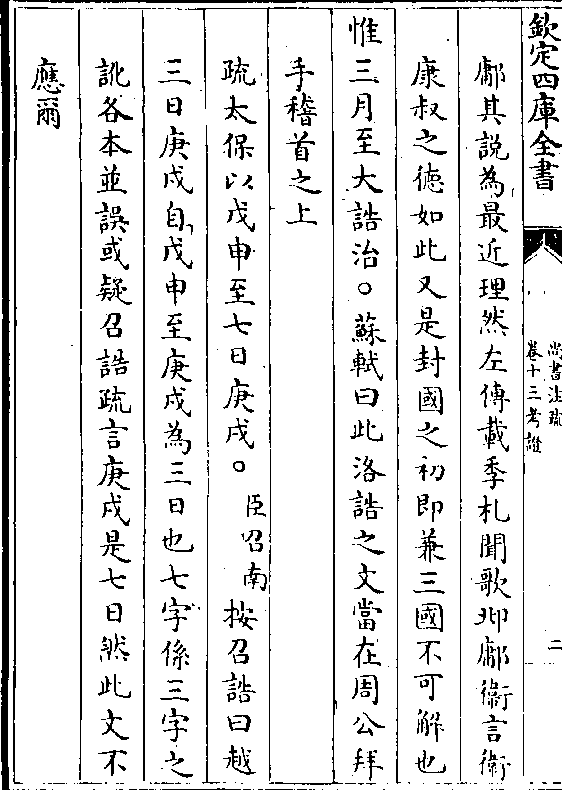 欽定四庫全書
尚書注疏
卷十三考證
二
鄘其説為最近理然左傳載季札聞歌邶鄘衞言衞
康叔之德如此又是封國之初即兼三國不可解也
惟三月至大誥治○蘇軾曰此洛誥之文當在周公拜
手稽首之上
疏太保以戊申至七日庚戌○臣召南按召誥曰越
三日庚戌自戊申至庚戌為三日也七字係三字之
訛各本並誤或疑召誥疏言庚戌是七日然此文不
應爾